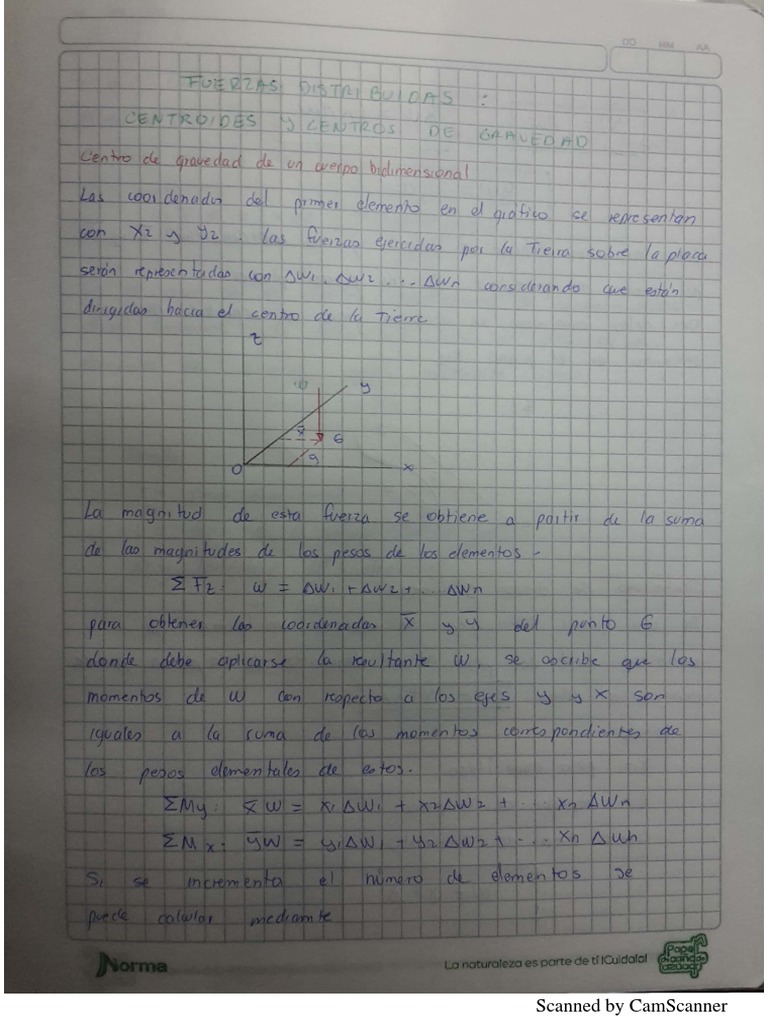 DD MM AA
FUERZAS DISTRIBUIDAS :
CENTROIDES Y CENTROS DE GRAVEDAD
Centro de gravedad de un cuerpo bidimensional
Las coordenadas del primer elemento en el gráfico se representan
con X2 y Y2. Las fuerzas ejercidas por la Tierra sobre la placa
serán representadas con ΔW1, ΔW2, ... ΔWn considerando que están
dirigidas hacia el centro de la Tierra
z
W y
x̄ G
O x
La magnitud de esta fuerza se obtiene a partir de la suma
de las magnitudes de los pesos de los elementos -
ΣFz: W = ΔW1 + ΔW2 + ... ΔWn
para obtener las coordenadas x̄ y ȳ del punto G
donde debe aplicarse la resultante W, se escribe que los
momentos de W con respecto a los ejes y y x son
iguales a la suma de los momentos correspondientes de
los pesos elementales de estos.
ΣMy: x̄W = x1ΔW1 + x2ΔW2 + ... xnΔWn
ΣMx: ȳW = y1ΔW1 + y2ΔW2 + ... xnΔWn
Si se incrementa el número de elementos se
puede calcular mediante
Norma
La naturaleza es parte de tí !Cuidala!
Papel
caña
azúcar
Scanned by CamScanner